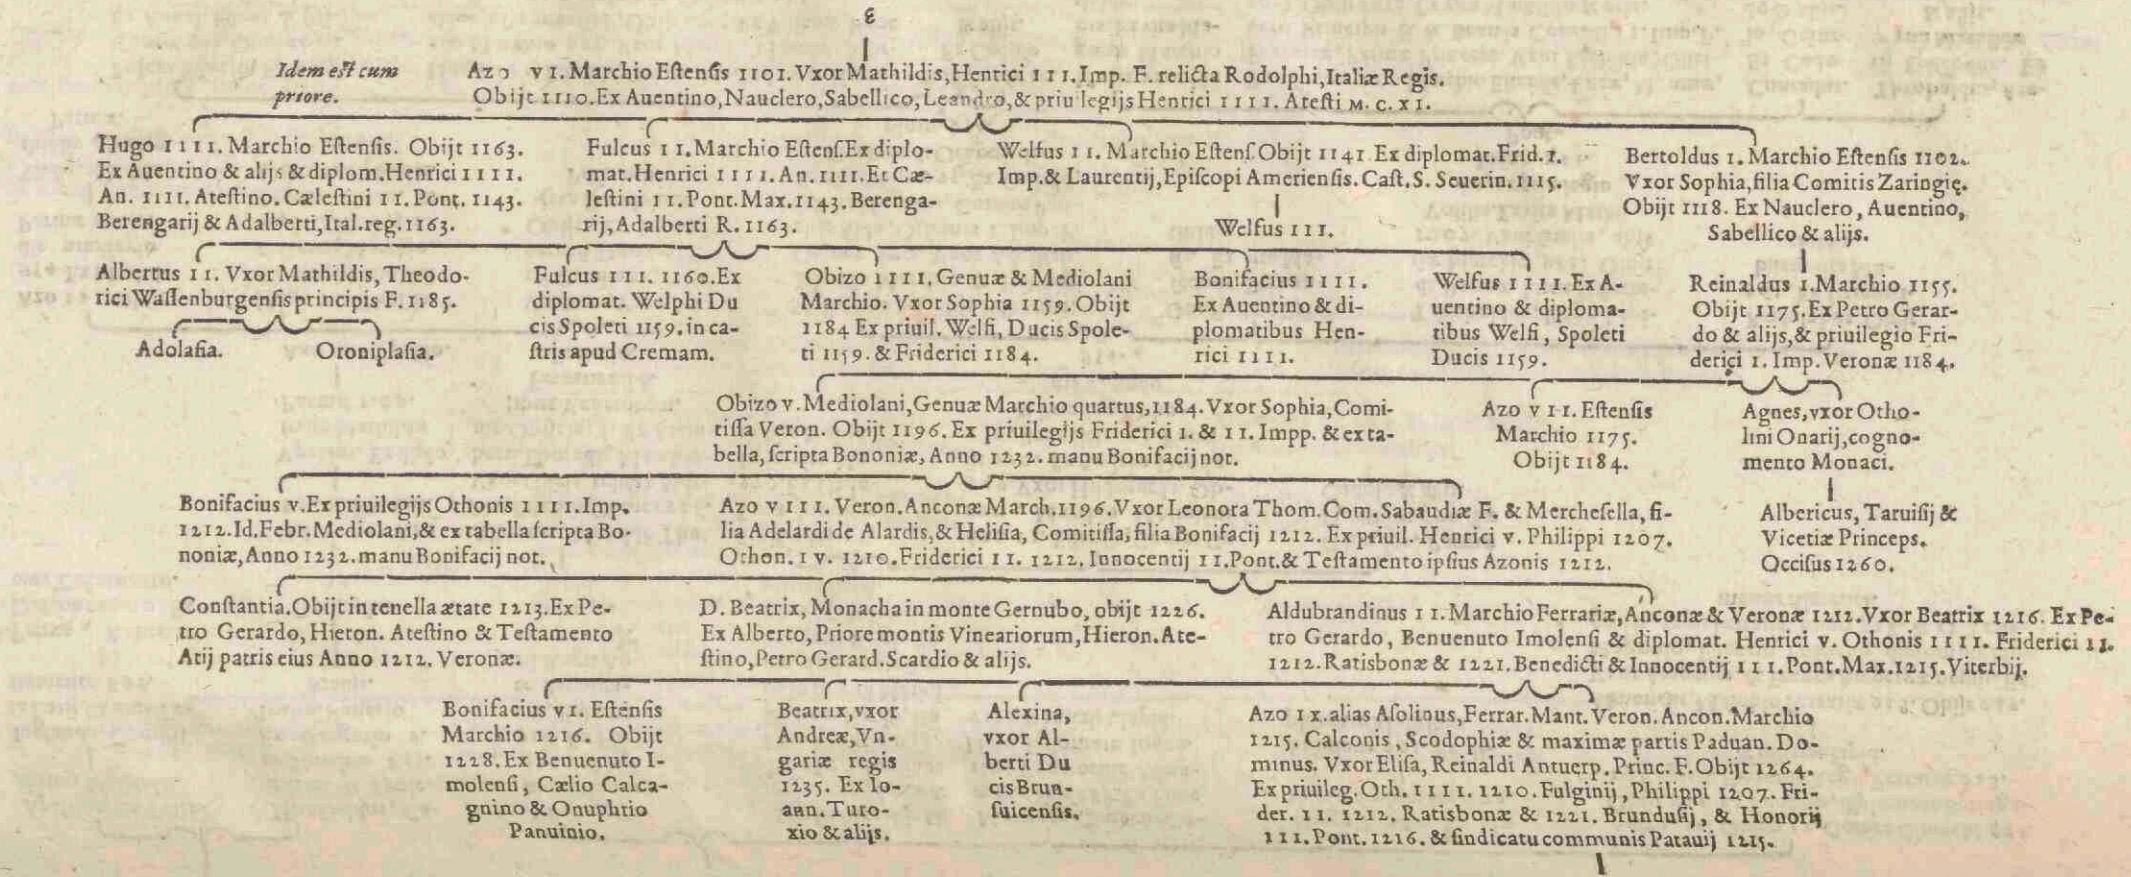 ε
Idem est cum
priore.
Azo VI. Marchio Estensis 1101. Vxor Mathildis, Henrici III. Imp. F. relicta Rodolphi, Italiæ Regis.
Obijt 1110. Ex Auentino, Nauclero, Sabellico, Leandro, & priuilegijs Henrici IIII. Atesti M. C. XI.
Hugo IIII. Marchio Estensis. Obijt 1163.
Ex Auentino & alijs & diplom. Henrici IIII.
An. IIII. Atestino. Cælestini II. Pont. 1143.
Berengarij & Adalberti, Ital. reg. 1163.
Fulcus II. Marchio Estens. Ex diplo-
mat. Henrici IIII. An. IIII. Et Cæ-
lestini II. Pont. Max. 1143. Berenga-
rij, Adalberti R. 1163.
Welfus II. Marchio Estens. Obijt 1141 Ex diplomat. Frid. I.
Imp. & Laurentij, Episcopi Ameriensis. Cast. S. Seuerin. 1115.
Welfus III.
Bertoldus I. Marchio Estensis 1102.
Vxor Sophia, filia Comitis Zaringię.
Obijt 1118. Ex Nauclero, Auentino,
Sabellico & alijs.
Albertus II. Vxor Mathildis, Theodo-
rici Wassenburgensis principis F. 1185.
Adolasia.
Oroniplasia.
Fulcus III. 1160. Ex
diplomat. Welphi Du
cis Spoleti 1159. in ca-
stris apud Cremam.
Obizo IIII. Genuæ & Mediolani
Marchio. Vxor Sophia 1159. Obijt
1184 Ex priuil. Welfi, Ducis Spole-
ti 1159. & Friderici 1184.
Bonifacius IIII.
Ex Auentino & di-
plomatibus Hen-
rici IIII.
Welfus IIII. Ex A-
uentino & diploma-
tibus Welfi, Spoleti
Ducis 1159.
Reinaldus I. Marchio 1155.
Obijt 1175. Ex Petro Gerar-
do & alijs, & priuilegio Fri-
derici I. Imp. Veronæ 1184.
Obizo V. Mediolani, Genuæ Marchio quartus, 1184. Vxor Sophia, Comi-
tissa Veron. Obijt 1196. Ex priuilegijs Friderici I. & II. Impp. & ex ta-
bella, scripta Bononiæ, Anno 1232. manu Bonifacij not.
Azo VII. Estensis
Marchio 1175.
Obijt 1184.
Agnes, vxor Otho-
lini Onarij, cogno-
mento Monaci.
Bonifacius V. Ex priuilegijs Othonis IIII. Imp.
1212. Id. Febr. Mediolani, & ex tabella scripta Bo-
noniæ, Anno 1232. manu Bonifacij not.
Azo VIII. Veron. Anconæ March. 1196. Vxor Leonora Thom. Com. Sabaudiæ F. & Merchesella, fi-
lia Adelardi de Alardis, & Helisia, Comitissa, filia Bonifacij 1212. Ex priuil. Henrici V. Philippi 1207.
Othon. IV. 1210. Friderici II. 1212. Innocentij II. Pont. & Testamento ipsius Azonis 1212.
Albericus, Taruisij &
Vicetiæ Princeps.
Occisus 1260.
Constantia. Obijt in tenella ætate 1213. Ex Pe-
tro Gerardo, Hieron. Atestino & Testamento
Atij patris eius Anno 1212. Veronæ.
D. Beatrix, Monacha in monte Gernubo, obijt 1226.
Ex Alberto, Priore montis Vineariorum, Hieron. Ate-
stino, Petro Gerard. Scardio & alijs.
Aldubrandinus II. Marchio Ferrariæ, Anconæ & Veronæ 1212. Vxor Beatrix 1216. Ex Pe-
tro Gerardo, Benuenuto Imolensi & diplomat. Henrici V. Othonis IIII. Friderici II.
1212. Ratisbonæ & 1221. Benedicti & Innocentij III. Pont. Max. 1215. Viterbij.
Bonifacius VI. Estensis
Marchio 1216. Obijt
1228. Ex Benuenuto I-
molensi, Cælio Calca-
gnino & Onuphrio
Panuinio.
Beatrix, vxor
Andreæ, Vn-
gariæ regis
1235. Ex Io-
ann. Turo-
xio & alijs.
Alexina,
vxor Al-
berti Du
cis Brun-
suicensis.
Azo IX. alias Asolinus, Ferrar. Mant. Veron. Ancon. Marchio
1215. Calconis, Scodophiæ & maximæ partis Paduan. Do-
minus. Vxor Elisa, Reinaldi Antuerp. Princ. F. Obijt 1264.
Ex priuileg. Oth. IIII. 1210. Fulginij, Philippi 1207. Fri-
der. II. 1212. Ratisbonæ & 1221. Brundusij, & Honorij
III. Pont. 1216. & sindicatu communis Patauij 1215.